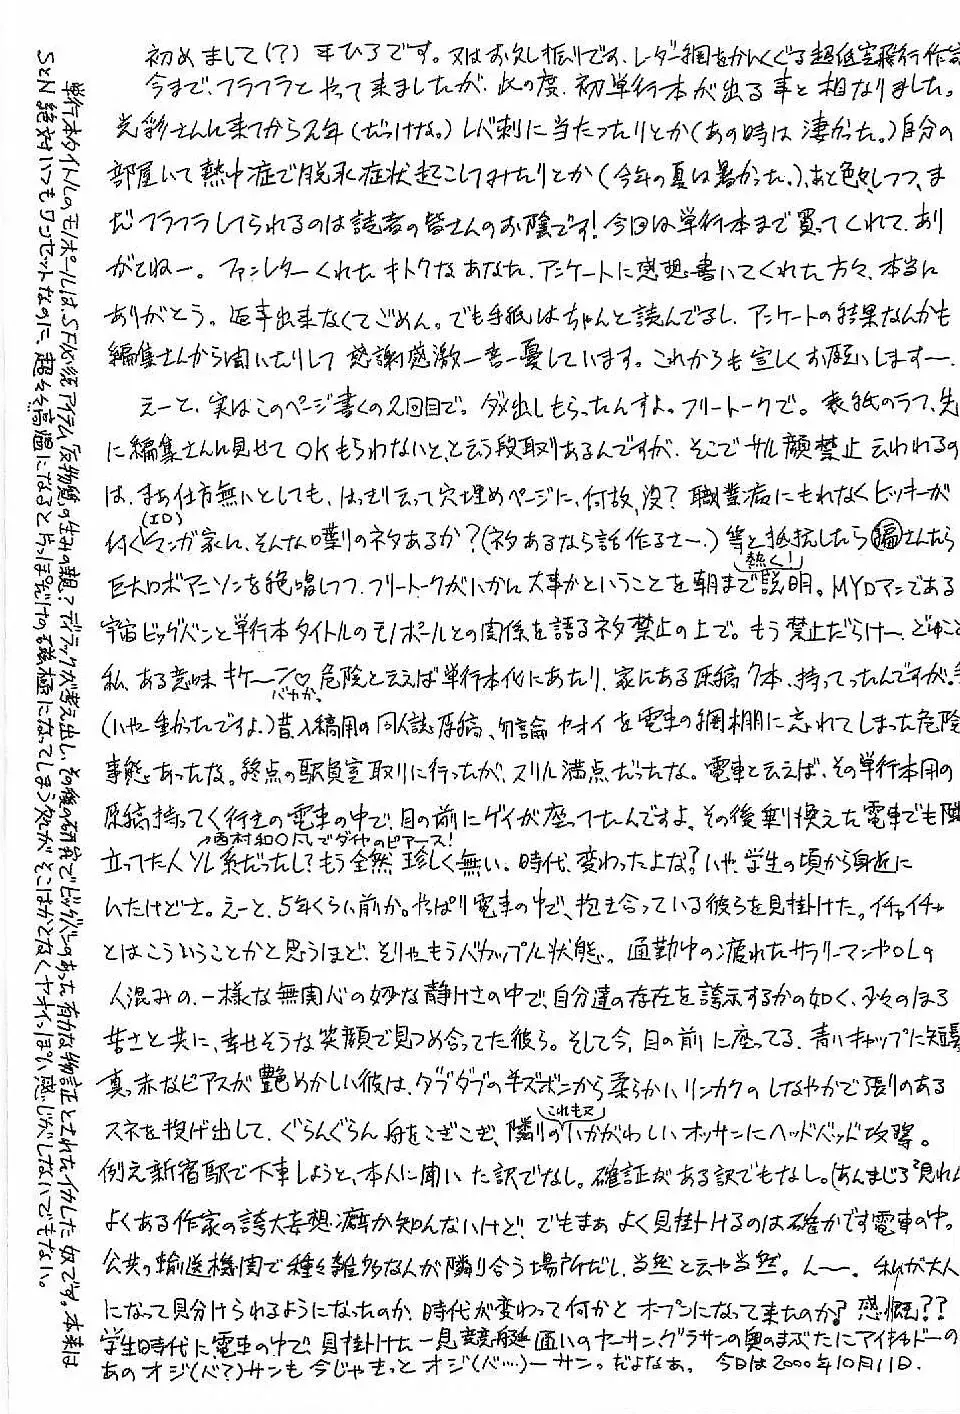 初めまして(?)耳ひろです。又はお久し振りです、レーダー網をかいくぐる超低空飛行作家
今まで、フラフラとやって来ましたが、此の度、初単行本が出る事と相なりました。
光彩さんに来てから2年(だっけな。)レバ刺に当たったりとか(あの時は凄かった。)自分の
部屋にいて熱中症で脱水症状起こしてみたりとか(今年の夏は暑かった、)、あと色々しつつ、ま
だフラフラしてられるのは読者の皆さんのお陰です!今回は単行本まで買ってくれて、あり
がとねー。ファンレターくれたキトクなあなた、アンケートに感想書いてくれた方々、本当に
ありがとう。返事出来なくてごめん。でも手紙はちゃんと読んでるし、アンケートの結果なんかも
編集さんから聞いたりして感謝感激一喜一憂しています。これからも宜しくお願いします〜。
えーと、実はこのページ書くの2回目で。ダメ出しもらったんすよ。フリートークで。表紙のラフ、先
に編集さんに見せてOKもらわないと、と云う段取りあるんですが、そこでサル顔禁止云われるの
は、まあ仕方無いとしても、はっきり云って穴埋めページに、何故、没?職業病にもれなくヒッキーが
付くマンガ家に、そんな喋りのネタあるか?(ネタあるなら話作るさー、)等と抵抗したら編さんたら
(ID)
熱く!
巨大ロボアニソンを絶唱しつつ、フリートークがいかに大事かということを朝まで説明。MYロマンである
宇宙ビッグバンと単行本タイトルのモノポールとの関係を語るネタ禁止の上で。もう禁止だらけー、
私、ある意味キケーン♡危険と云えば単行本化にあたり、家にある原稿7本、持ってったんですが、
バカか、
(いやー重かったですよ。)昔入稿用の同人誌原稿、勿論ヤオイを電車の網棚に忘れてしまった危険
事態あったな。終点の駅員室取りに行ったが、スリル満点だったな。電車と云えば、その単行本用の
原稿持ってく行きの電車の中で、目の前にゲイが座ってたんですよ。その後乗り換えた電車でも隣
西村知〇風でダイヤのピアース!
立ってた人ソレ系だったし?もう全然珍しく無い。時代、変わったよな?いや、学生の頃から身近に
いたけどさ。えーと、5年くらい前か。やっぱり電車の中で、抱き合っている彼らを見掛けた。イチャイチャ
とはこういうことかと思うほど、そりゃもうバカップル状態。通勤中の疲れたサラリーマンやOLの
人混みの、一様な無関心の妙な静けさの中で、自分達の存在を誇示するかの如く、少々のほろ
苦さと共に、幸せそうな笑顔で見つめ合ってた彼ら。そして今、目の前に座ってる、青いキャップに短髪
真っ赤なピアスが艶めかしい彼は、ダブダブの半ズボンから柔らかいリンカクのしなやかで張りのある
スネを投げ出して、ぐらんぐらん舟をこぎこぎ、隣りのいかがわしいオッサンにヘッドバッド攻撃。
これも又
例え新宿駅で下車しようと、本人に聞いた訳でなし。確証がある訳でもなし。(あんまじろ²見れん
よくある作家の誇大妄想癖か知んないけど、でもまあよく見掛けるのは確かです電車の中。
公共の輸送機関で種々雑多な人が隣り合う場所だし、当然と云や当然。んー。私が大人
になって見分けられるようになったのか、時代が変わって何かとオープンになって来たのか?感慨??
学生時代に電車の中で、見掛けた一見競艇通いのヤーサン、グラサンの奥のまぶたにアイシャドーの
あのオジ(バ?)サンも今じゃきっとオジ(バ…)ーサン。だよなぁ。今日は2000年10月11日.
単行本タイトルのモノポールは、SF必須アイテム「反物質」の生みの親、ディラックが考え出し、その後の研究でビッグバンのあった有力な物証とされたイカした奴です。本来は
SとN絶対いつもワンセットなのに、超々高温になると片っぽだけの磁極になってしまう処がそこはかとなくヤオイっぽい感じがしないでもない。